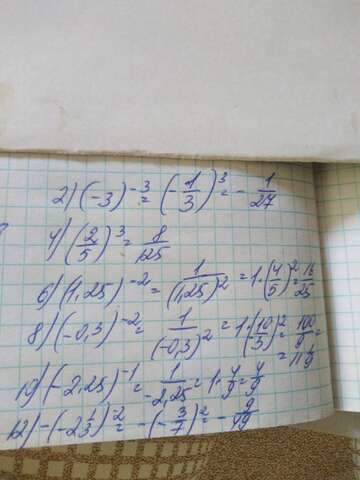 2) (-3)^-3 = (-1/3)^3 = -1/27
4) (2/5)^3 = 8/125
6) (1,25)^-2 = 1/(1,25)^2 = 1·(4/5)^2 = 16/25
8) (-0,3)^-2 = 1/(-0,3)^2 = 1·(10/3)^2 = 100/9 =
= 11 1/9
10) (-2,25)^-1 = 1/-2,25 = 1·4/9 = 4/9
12) -(-2 1/3)^-2 = -(-3/7)^2 = -9/49